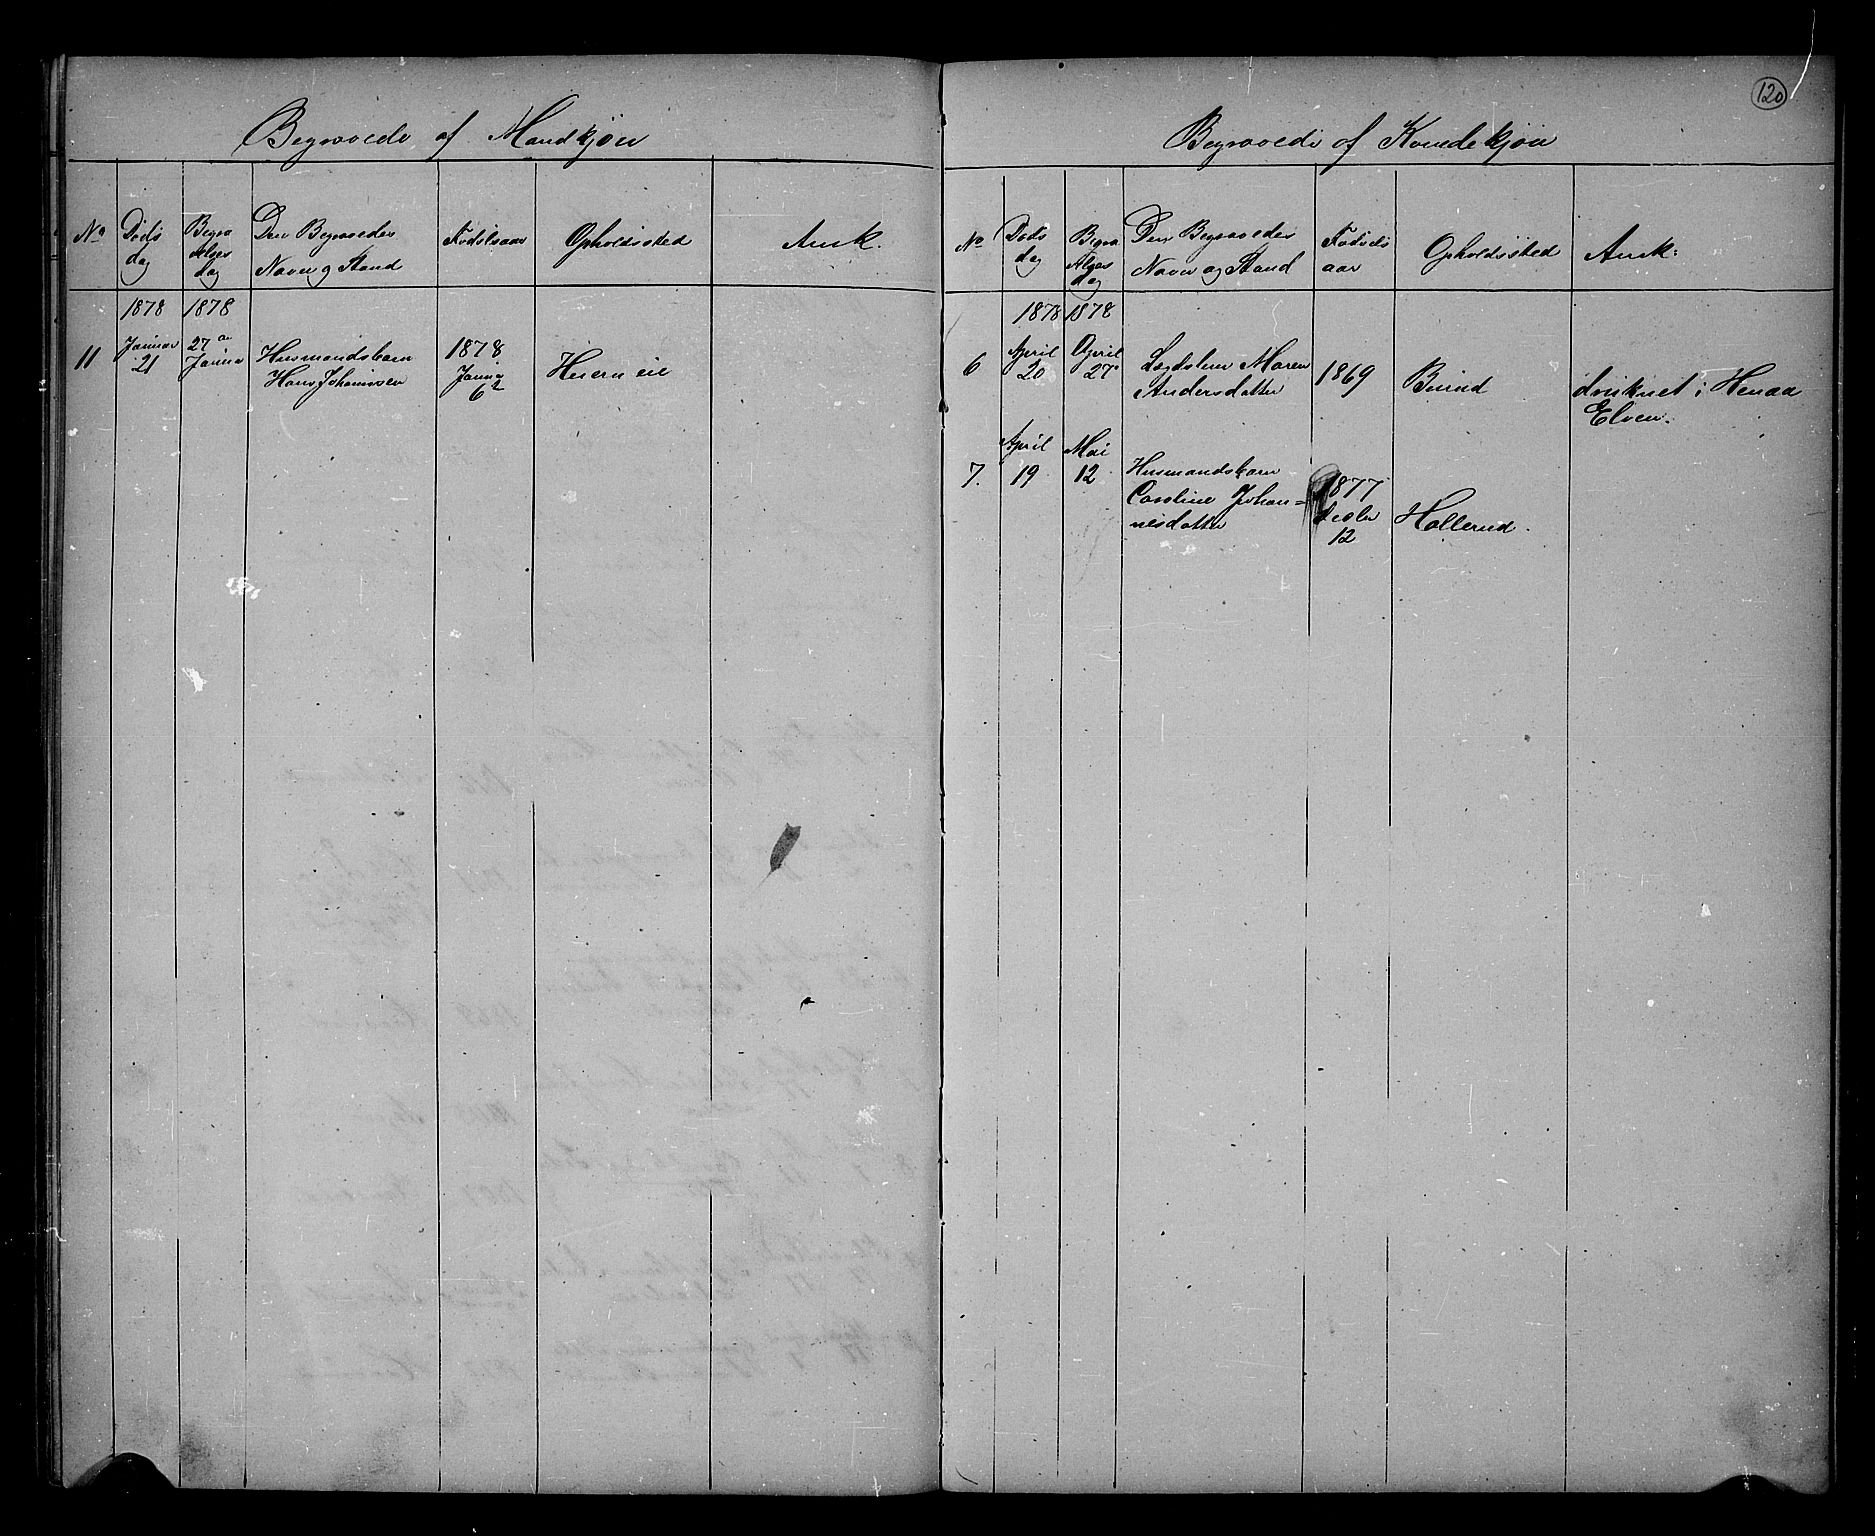 120
Begravede af Mandkjøn
No Døds dag Begravelses dag Den Begravedes Navn og Stand Fødselsaar Opholdssted Ank.
1878 1878
11 Januar 21 27de Januar Husmandsbarn Hans Johannssen 1878 Januar 6te Heieren eie
Begravede af Kvindekjøn
No Døds dag Begravelses dag Den Begravedes Navn og Stand Fødsels aar Opholdssted Ank:
1878 1878
6 April 20 April 27 Lægdslem Maren Andersdatter 1869 druknet i Henaa Elven.
7. April 19 Mai 12 Husmandsbarn Caroline Johan= nesdatter 1877 Decbr 12 Hollerud.